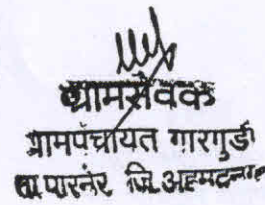 ग्रामसेवक
ग्रामपंचायत गारगुडी
ता पारनेर जि. अहमदनगर